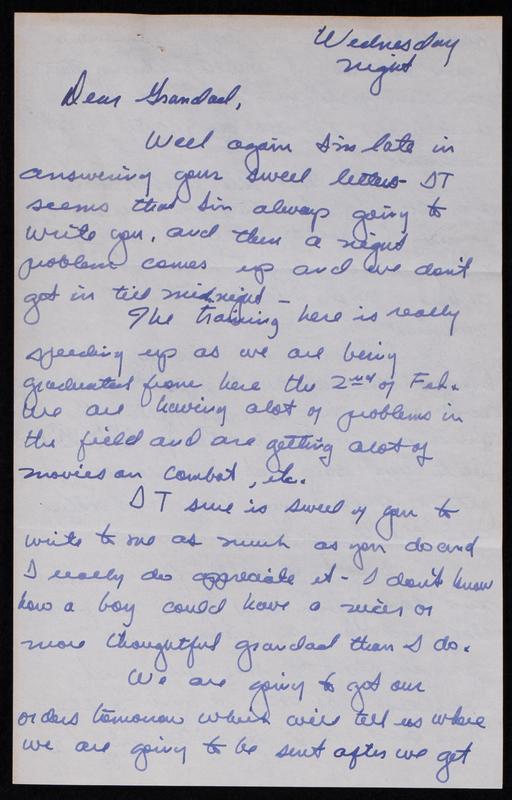 Wednesday
night
Dear Grandad,
Well again I'm late in
answering your sweet letters- IT
seems that I'm always going to
write you, and then a night
problem comes up and we don't
get in till midnight -
The training here is really
speeding up as we are being
graduated from here the 2nd of Feb.
We are having alot of problems in
the field and are getting alot of
movies on combat, etc.
IT sure is sweet of you to
write to me as much as you do and
I really do appreciate it - I don't know
how a boy could have a nicer or
more thoughtful grandad than I do.
We are going to get our
orders tomorrow which will tell us where
we are going to be sent after we get